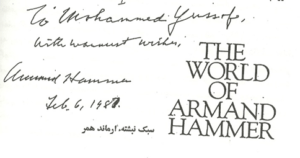 To Mohammed Yussofe,
With warmest wishes,
Armand Hammer
Feb. 6, 1987.
THE
WORLD
OF
ARMAND
HAMMER
سبک نبشته، ارماند همر